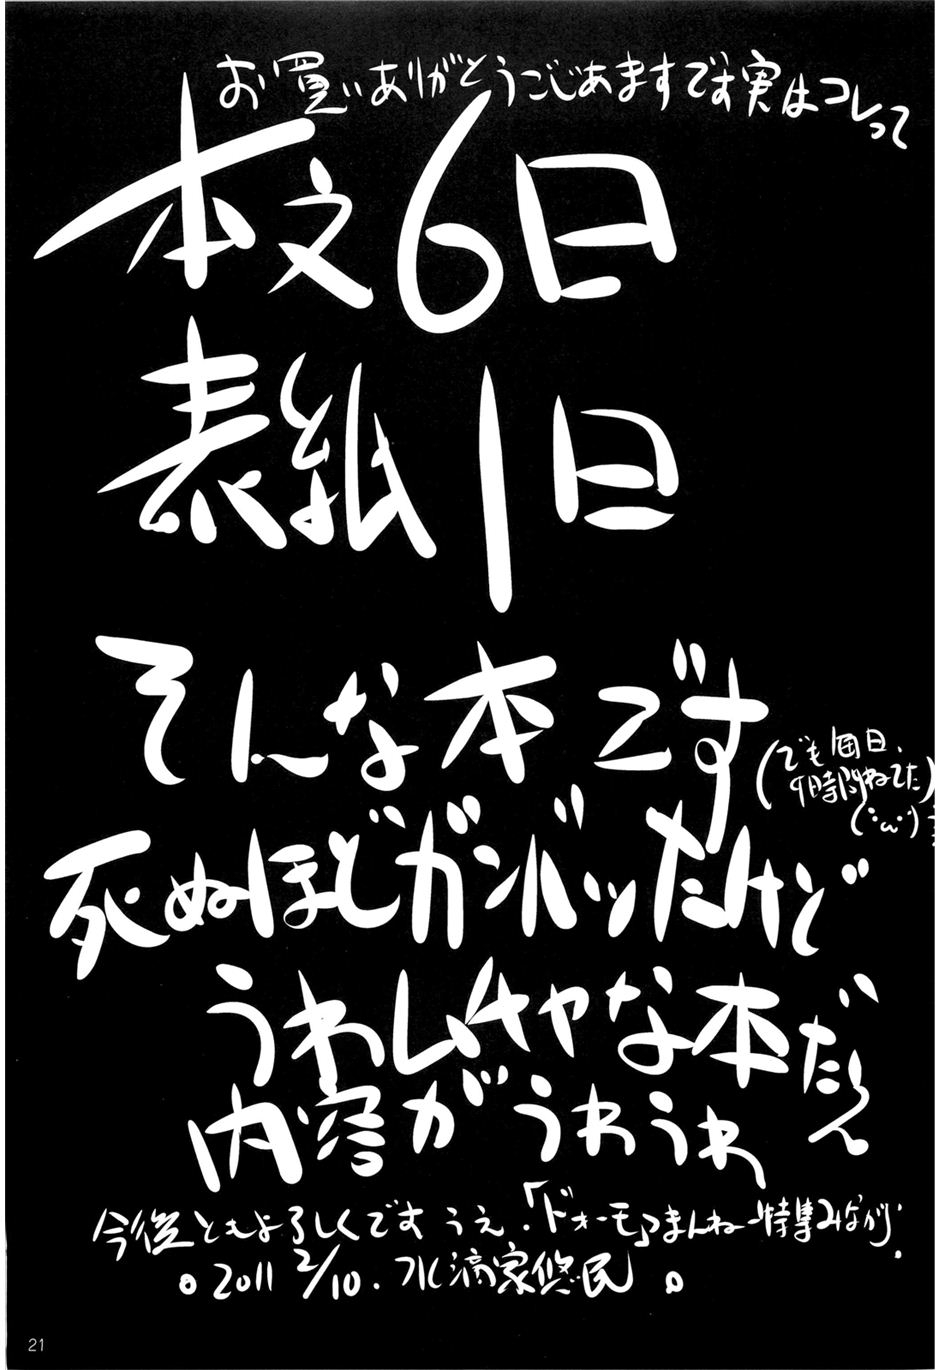 お買いありがとうごじあますです実はコレって
本文6日
表紙1日
そんな本です
(でも毎日、
9時間ねてた)
(・ω・)
死ぬほどガンバッたけど
うわムチャな本だ〜
内容がうわうわ
今後ともよろしくですうえ.「ドォーモ」つまんねー特集みながら.
。2011 2/10. 水滴家悠民 。
21